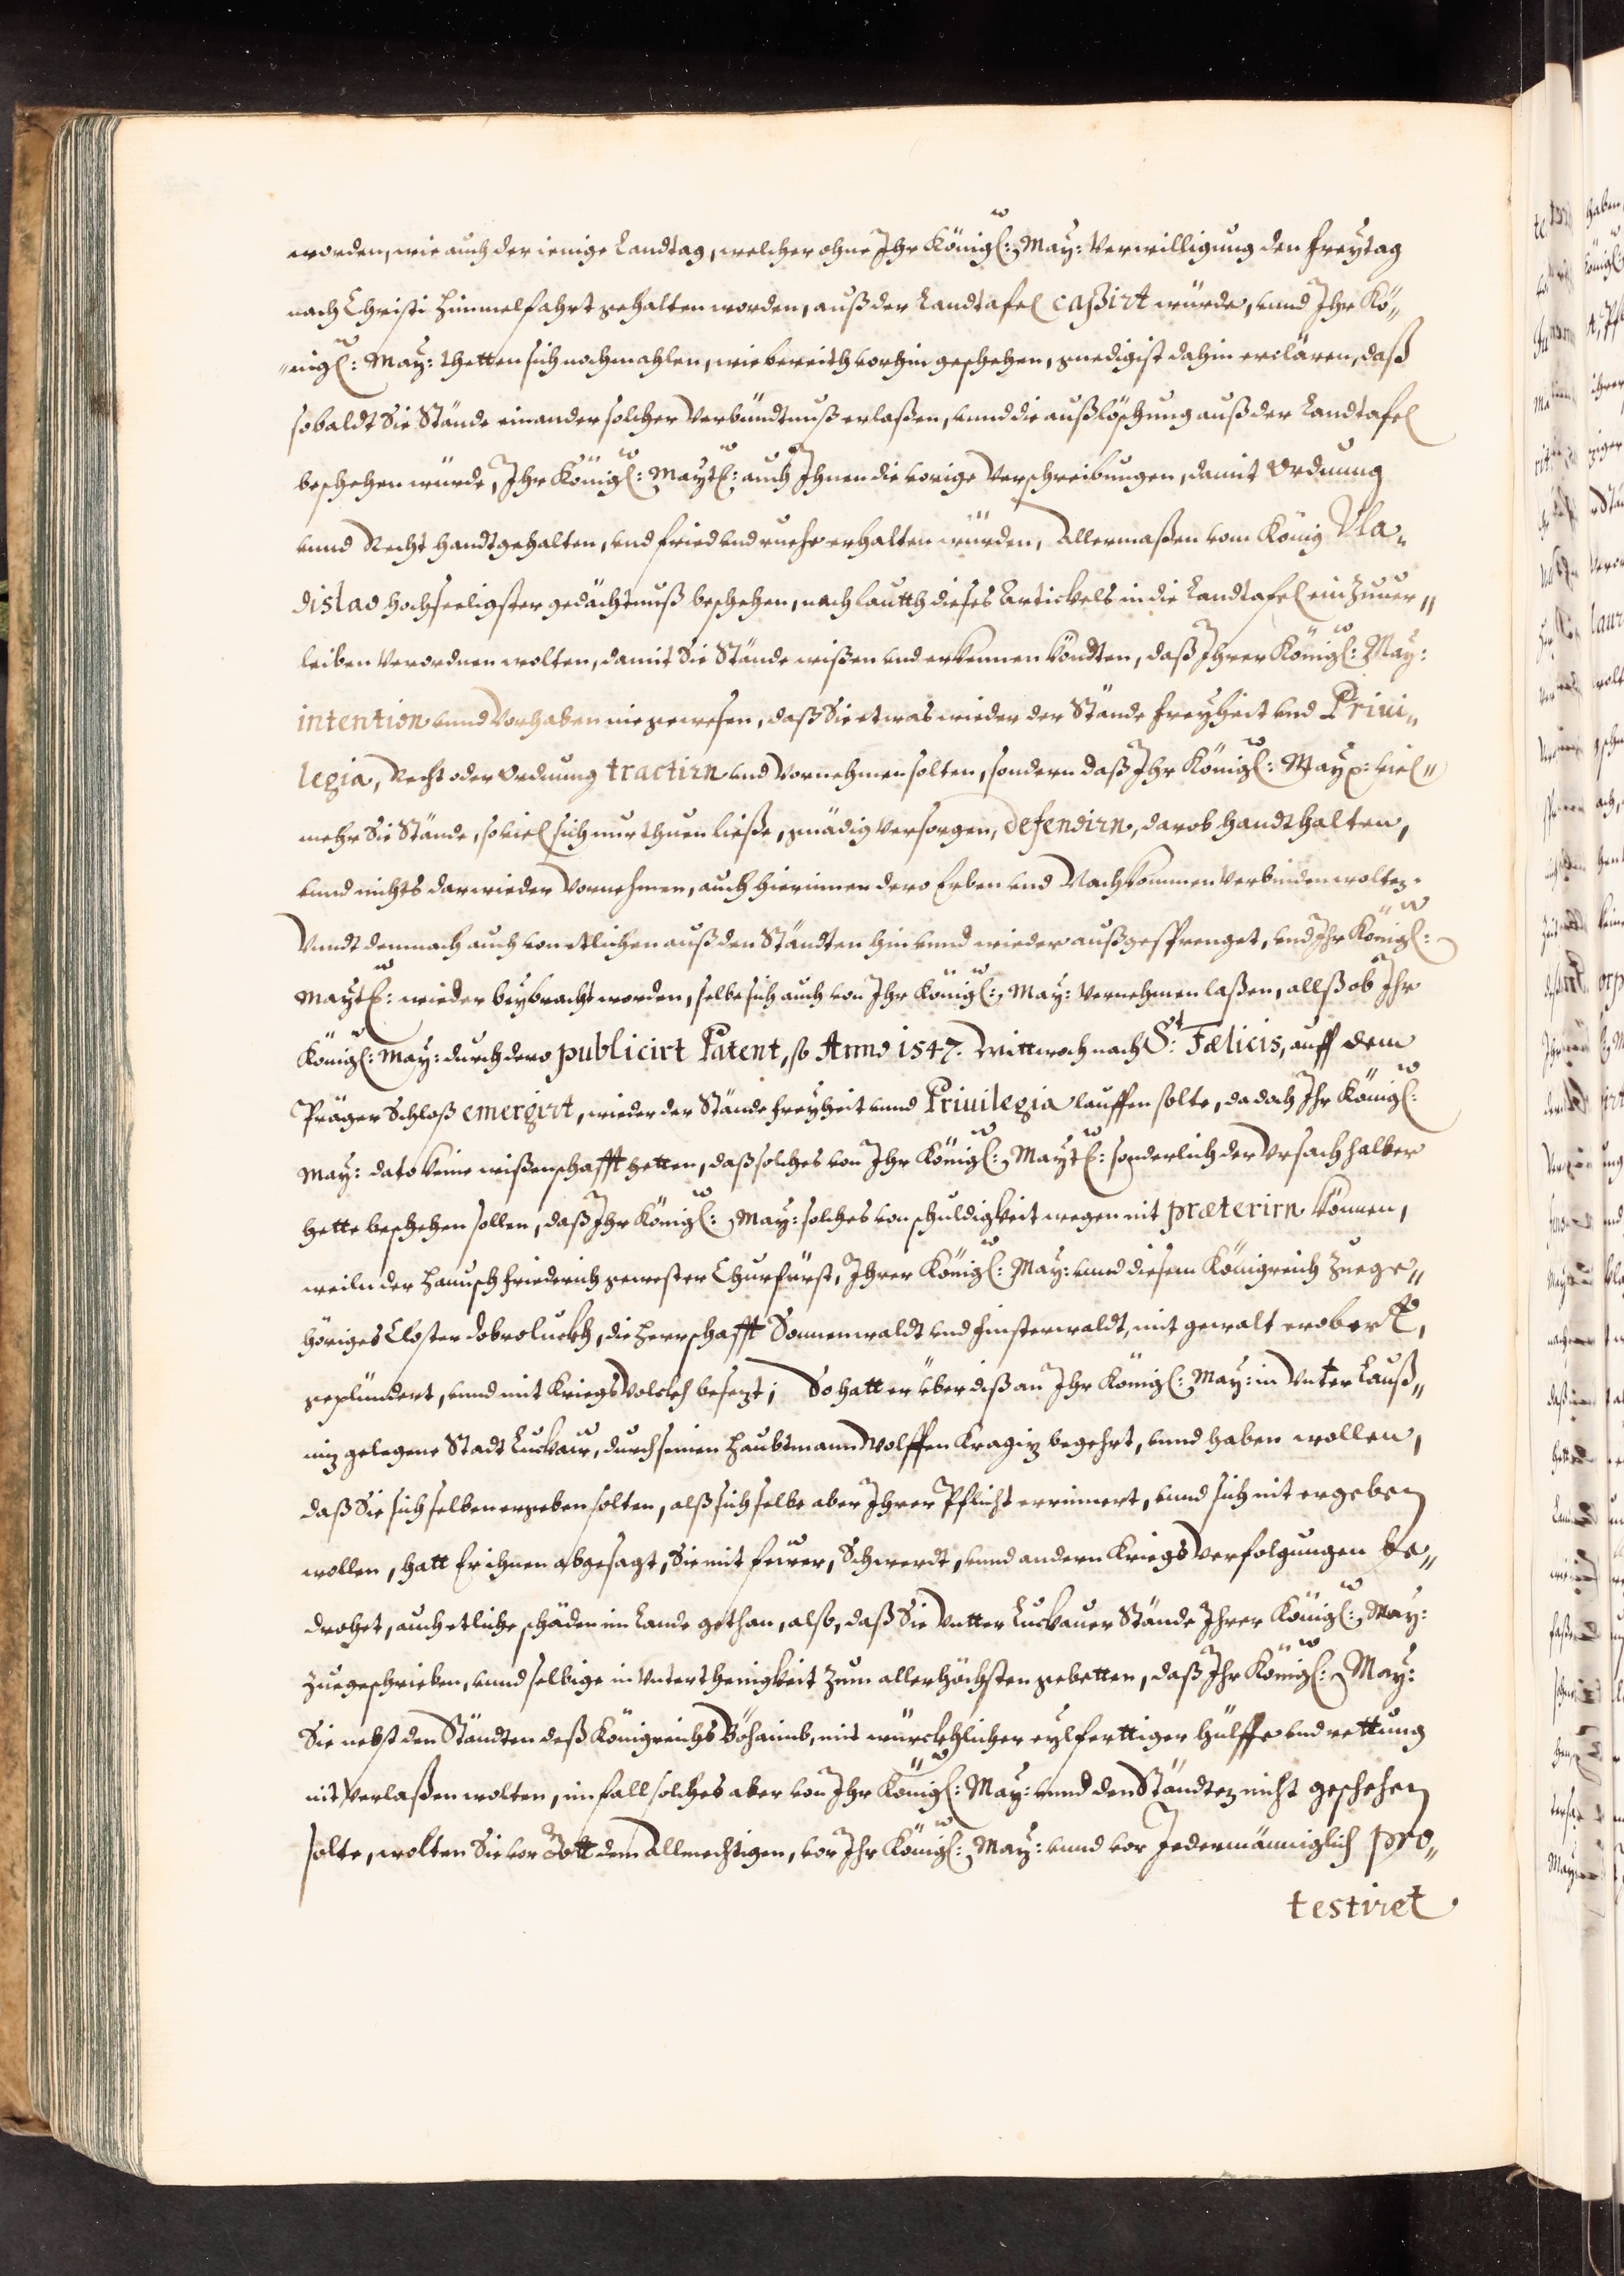 worden, wie auch der ienige Landtag, welcher ohne Ihr Königl: May: Verwilligung den Freytag
nach Christi Himmelfahrt gehalten worden, auß der Landtafel caßirt würde, vnnd Ihr Kö„
„nigl: May: thetten sich nochmahlen, wie bereith vorhin geschehen, gnedigist dahin erclären, daß
sobaldt Sie Stände einander solcher Verbündtnuß erlaßen, vnnd die außlöschung auß der Landtafel
beschehen würde, Ihr Königl: Maytt: auch Ihnen die vorige Verschreibungen, damit Ordnung
vnnd Recht handtgehalten, vnd fried vnd ruehe erhalten würden, Allermaßen vom König Vla„
dislao hochseeligster gedächtnuß beschehen, nach lautth dieses Artickels in die Landtafel einzuuer„
leiben Verordnen wolten, damit Sie Stände wißen vnd erkennen köndten, daß Ihrer Königl: May:
intention vnnd Vorhaben nie gewesen, daß Sie etwas wieder der Stände freyheit vnd Priui„
legia, Recht oder Ordnung tractirn vnd Vornehmen solten, sondern daß Ihr Königl: May: viel„
mehr Sie Stände, so viel sich nur thuen ließe, gnädig Versorgen, defendirn, darob handthalten,
vnnd nichts darwieder Vornehmen, auch hierinnen dero Erben vnd Nachkommen Verbinden wolten.
Vnndt demnach auch von etlichen auß den Ständten hin vnnd wieder außgesprenget, vnd Ihr Königl:
Maytt: wieder beybracht worden, selbe sich auch von Ihr Königl: May: Vernehmen laßen, allß ob Ihr
Königl: May: durch dero publicirt Patent, so Anno 1547. Mittwoch nach St: Fælicis, auff dem
Präger Schloß emergirt, wieder der Stände freyheit vnnd Priuilegia lauffen solte, da doch Ihr Königl:
May: dato keine wißenschafft hetten, daß solches von Ihr Königl: Maytt: sonderlich der Vrsach halber
hette beschehen sollen, daß Ihr Königl: May: solches von schuldigkeit wegen nit præterirn können,
weiln der Hannsch friederich gewester Churfürst, Ihrer Königl: May: vnnd diesem Königreich Zuege„
höriges Closter Dobroluckh, die Herrschafft Sonnenwaldt vnd finsterwaldt, mit gewalt erobert,
geplündert, vnnd mit Kriegs Volckh besezt; So hatt er über diß an Ihr Königl: May: in Vnter Lauß„
niz gelegene Stadt Luckaw, durch seinen Haubtmann Wolffen Kragiz begehrt, vnnd haben wollen,
daß Sie sich selben ergeben solten, alß sich selbe aber Ihrer Pflicht erinnert, vnnd sich nit ergeben
wollen, hatt Er ihnen abgesagt, Sie mit feüer, Schwerdt, vnnd andern Kriegs Verfolgungen be„
drohet, auch etliche schäden im Lande gethan, also, daß Sie Vntter Luckauer Stände Ihrer Königl: May:
Zuegeschrieben, vnnd selbige in Vnterthenigkeit zum allerhöchsten gebetten, daß Ihr Königl: May:
Sie nebst den Ständten deß Königreichs Böhaimb, mit würckhlicher eylferttiger hülffe vnd rettung
nit Verlaßen wolten, im fall solches aber von Ihr Königl: May: vnnd den Ständten nicht geschehen
solte, wolten Sie vor Gott dem Allmechtigen, vor Ihr Königl: May: vnnd vor Jedermänniglich pro„
testiret